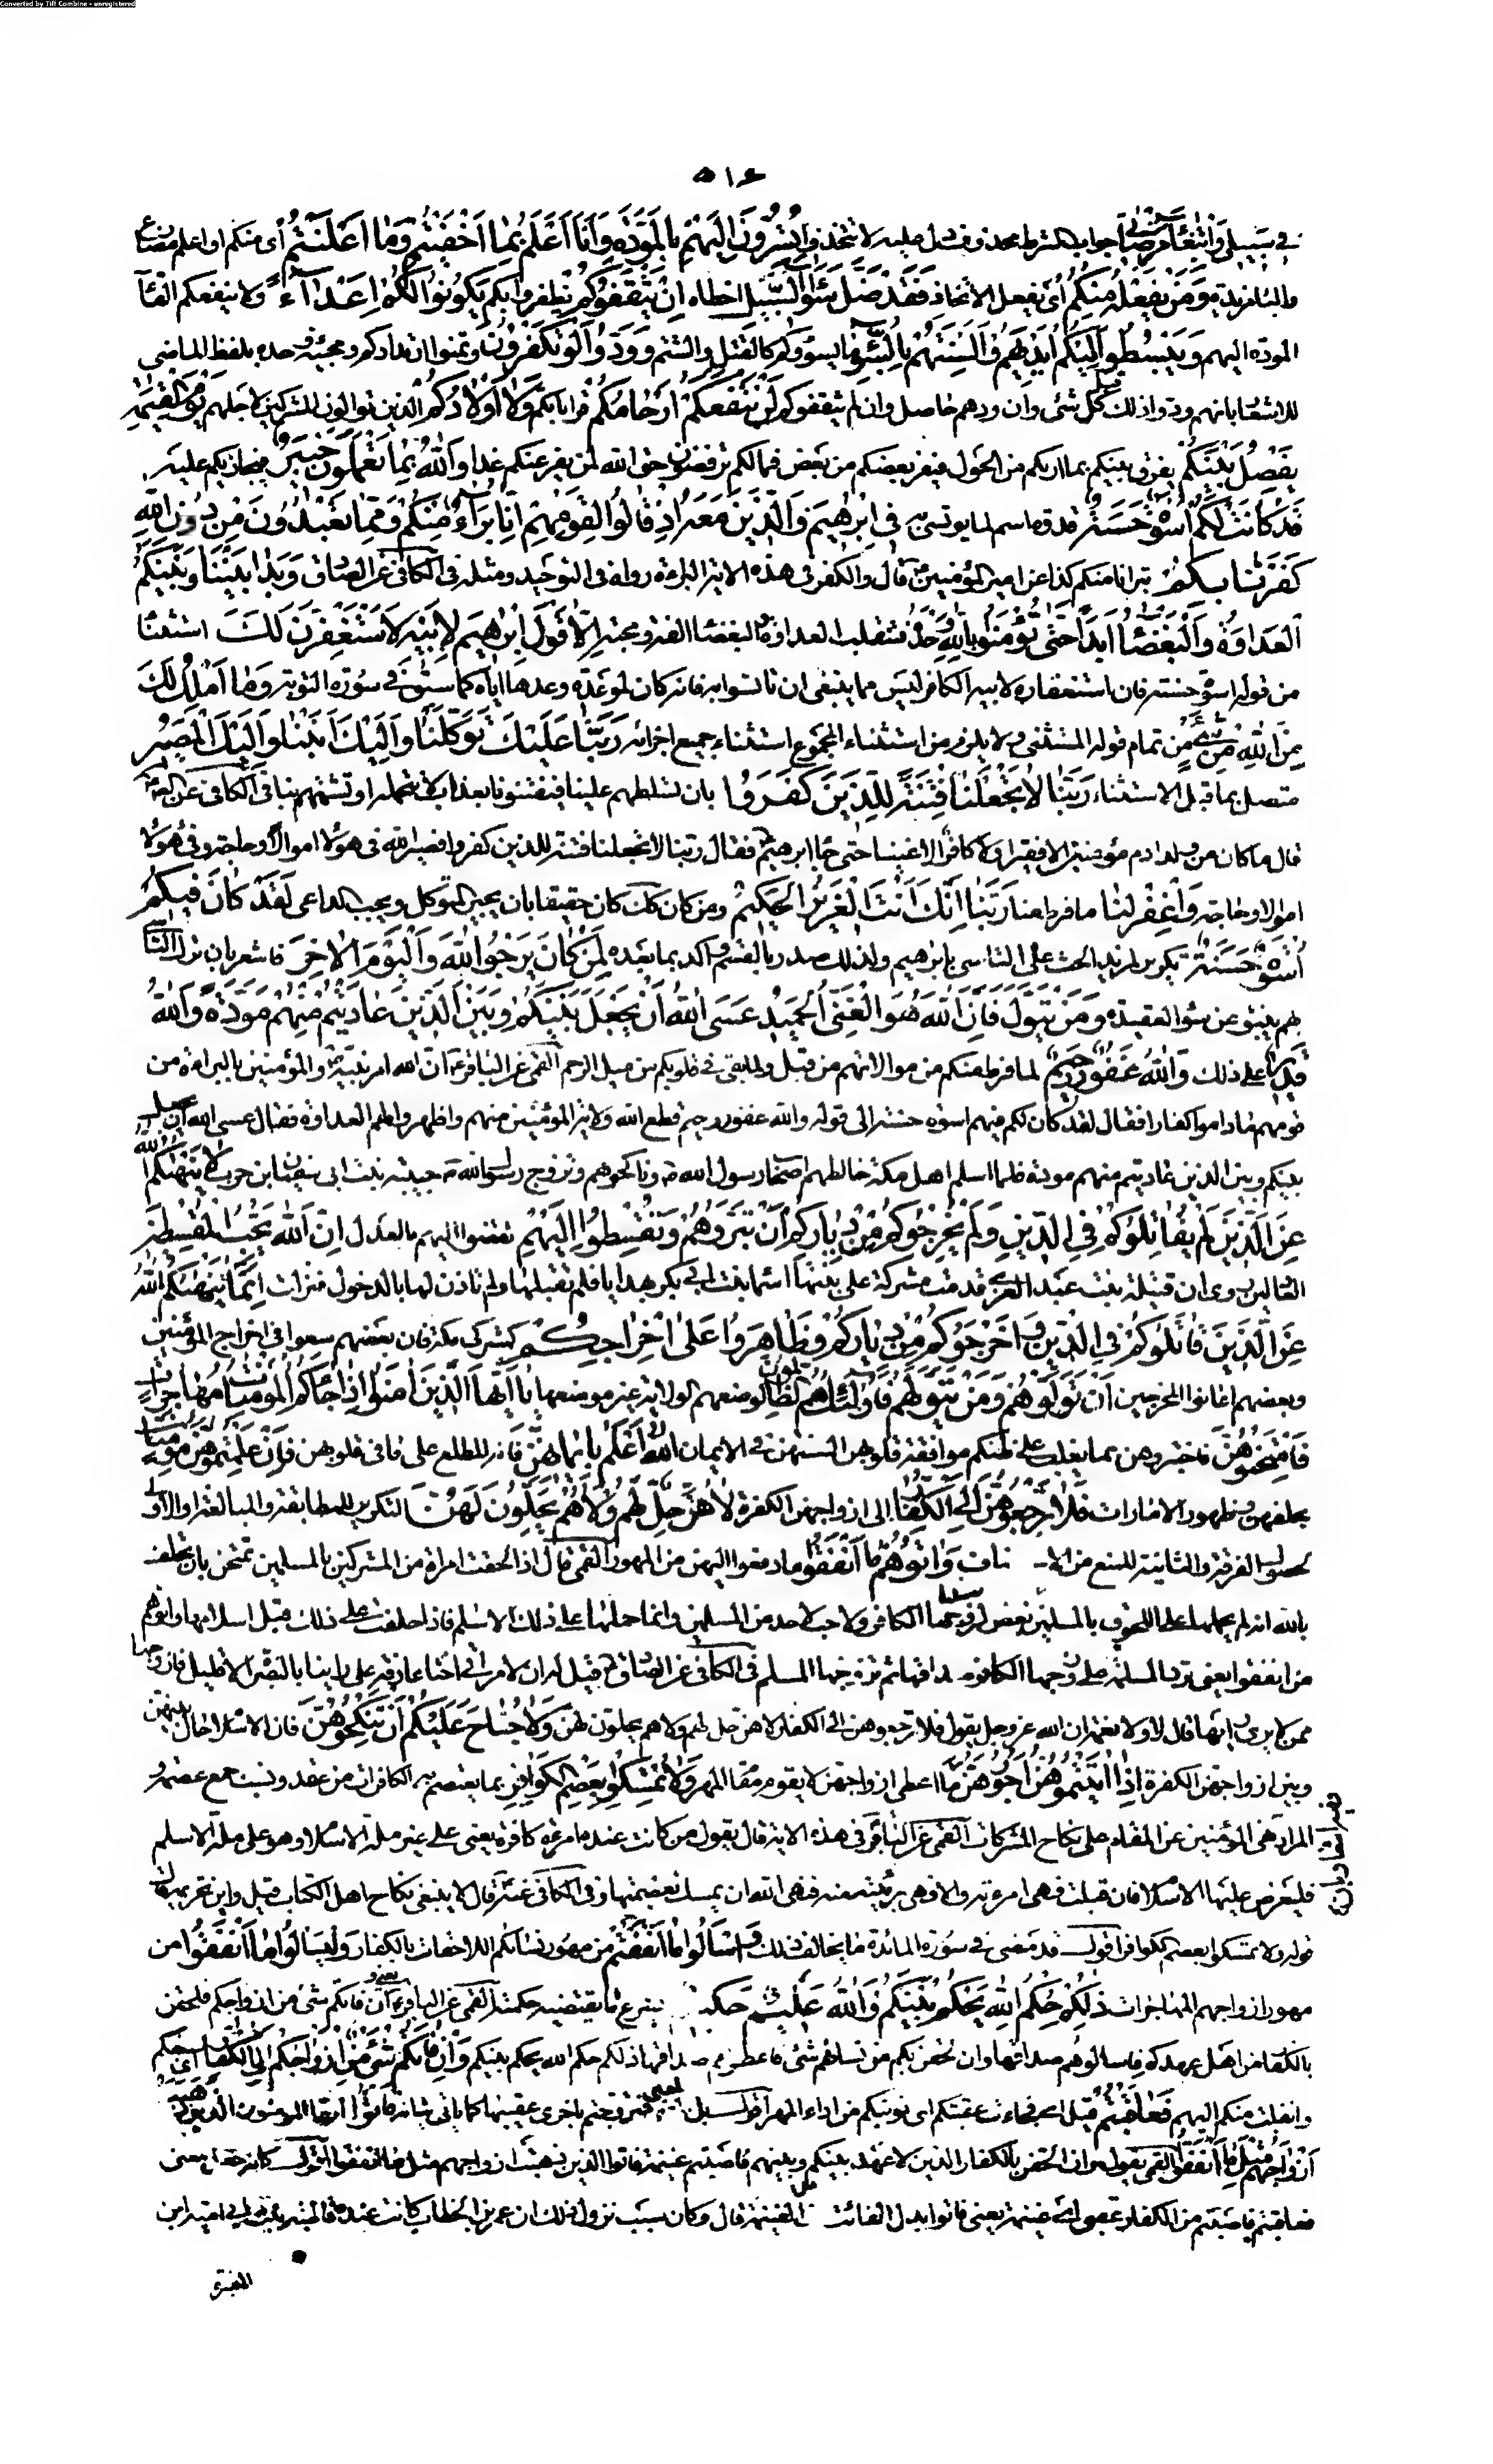 Converted by Tiff Combine - unregistered
٥١٤
في سَبيلي وَابْتِغاءَ مَرْضاتي جواب الشرط محذوف دل عليه لا تتخذوا تُسِرُّونَ إِلَيْهِمْ بِالْمَوَدَّةِ وَأَنَا أَعْلَمُ بِما أَخْفَيْتُمْ وَما أَعْلَنْتُمْ أي منكم او اعلم مضارع
والباء مزيدة وَمَنْ يَفْعَلْهُ مِنْكُمْ أي يفعل الاتخاذ فَقَدْ ضَلَّ سَواءَ السَّبيلِ اخطاه إِنْ يَثْقَفُوكُمْ يظفروا بكم يَكُونُوا لَكُمْ أَعْداءً ولا ينفعكم القاء
المودة اليهم وَيَبْسُطُوا إِلَيْكُمْ أَيْدِيَهُمْ وَأَلْسِنَتَهُمْ بِالسُّوءِ بما يسوؤكم كالقتل والشتم وَوَدُّوا لَوْ تَكْفُرُونَ وتمنوا ارتدادكم ومجيئه وحده بلفظ الماضي
للاشعار بانهم ودوا ذلك قبل كل شئ وان ودهم حاصل وان لم يثقفوكم لَنْ تَنْفَعَكُمْ أَرْحامُكُمْ قراباتكم وَلا أَوْلادُكُمْ الذين توالون المشركين لاجلهم يَوْمَ الْقِيمَةِ
يَفْصِلُ بَيْنَكُمْ يفرق بينكم بما اريكم من الهول فيفر بعضكم من بعض فما لكم ترفضون حق الله لمن يفر عنكم غدا وَاللهُ بِما تَعْمَلُونَ خَبيرٌ فيجازيكم عليه
قَدْ كانَتْ لَكُمْ أُسْوَةٌ حَسَنَةٌ قدوة اسم لما يوتسى به في إِبْرهيمَ وَالَّذينَ مَعَهُ إِذْ قالُوا لِقَوْمِهِمْ إِنَّا بُرَآءُ مِنْكُمْ وَمِمَّا تَعْبُدُونَ مِنْ دُونِ اللهِ
كَفَرْنا بِكُمْ تبرانا منكم كذا عن امير المؤمنين ع قال والكفر في هذه الاية البراءة رواه في التوحيد ومثله في الكافي عن الصادق وَبَدا بَيْنَنا وَبَيْنَكُمُ
الْعَداوَةُ وَالْبَغْضاءُ أَبَدًا حَتَّى تُؤْمِنُوا بِاللهِ وَحْدَهُ فتنقلب العداوة والبغضاء الفة ومحبة إِلَّا قَوْلَ إِبْرهيمَ لِأَبيهِ لَأَسْتَغْفِرَنَّ لَكَ استثناء
من قوله اسوة حسنة فان استغفاره لابيه الكافر ليس مما ينبغي ان تاتسوا به فانه كان لموعدة وعدها اياه كما سبق في سورة التوبة وَما أَمْلِكُ لَكَ
مِنَ اللهِ مِنْ شَيْءٍ من تمام قوله المستثنى ولا يلزم من استثناء المجموع استثناء جميع اجزائه رَبَّنا عَلَيْكَ تَوَكَّلْنا وَإِلَيْكَ أَنَبْنا وَإِلَيْكَ الْمَصيرُ
متصل بما قبل الاستثناء رَبَّنا لا تَجْعَلْنا فِتْنَةً لِلَّذينَ كَفَرُوا بان تسلطهم علينا فيفتنونا بعذاب لا نتحمله او تشمتهم بنا في الكافي عن الصادق
قال ما كان من ولد ادم مؤمن الا فقيرا ولا كافر الا غنيا حتى جاء ابرهيم فقال ربنا لا تجعلنا فتنة للذين كفروا فصير الله في هؤلاء اموالا وحاجة وفي هؤلاء
اموالا وحاجة وَاغْفِرْ لَنا ما فرط منا رَبَّنا إِنَّكَ أَنْتَ الْعَزيزُ الْحَكيمُ ومن كان كك كان حقيقا بان يجير المتوكل ويجيب الداعي لَقَدْ كانَ لَكُمْ فيهِمْ
أُسْوَةٌ حَسَنَةٌ تكرير لمزيد الحث على التاسي بابرهيم ولذلك صدر بالقسم واكد بما بعده لِمَنْ كانَ يَرْجُوا اللهَ وَالْيَوْمَ الْآخِرَ فاشعر بان ترك التاسي
بهم ينبئ عن سوء العقيدة وَمَنْ يَتَوَلَّ فَإِنَّ اللهَ هُوَ الْغَنِيُّ الْحَميدُ عَسَى اللهُ أَنْ يَجْعَلَ بَيْنَكُمْ وَبَيْنَ الَّذينَ عادَيْتُمْ مِنْهُمْ مَوَدَّةً وَاللهُ
قَديرٌ على ذلك وَاللهُ غَفُورٌ رَحيمٌ لما فرط منكم من موالاتهم من قبل ولما بقي في قلوبكم من ميل الرحم القمي عن الباقر ع ان الله امر نبيه والمؤمنين بالبراءة من
قومهم ما داموا كفارا فقال لقد كان لكم فيهم اسوة حسنة الى قوله والله غفور رحيم قطع الله ولاية المؤمنين منهم واظهروا لهم العداوة فقال عسى الله ان يجعل
بينكم وبين الذين عاديتم منهم مودة فلما اسلم اهل مكة خالطهم اصحاب رسول الله ص وناكحوهم وتزوج رسول الله ص حبيبة بنت ابي سفيان ابن حرب لا يَنْهيكُمُ اللهُ
عَنِ الَّذينَ لَمْ يُقاتِلُوكُمْ فِي الدِّينِ وَلَمْ يُخْرِجُوكُمْ مِنْ دِيارِكُمْ أَنْ تَبَرُّوهُمْ وَتُقْسِطُوا إِلَيْهِمْ تقضوا اليهم بالعدل إِنَّ اللهَ يُحِبُّ الْمُقْسِطينَ
العادلين روي ان قتيلة بنت عبد العزى قدمت مشركة على بنتها اسماء بنت ابي بكر بهدايا فلم تقبلها ولم تاذن لها بالدخول فنزلت إِنَّما يَنْهيكُمُ اللهُ
عَنِ الَّذينَ قاتَلُوكُمْ فِي الدِّينِ وَأَخْرَجُوكُمْ مِنْ دِيارِكُمْ وَظاهَرُوا عَلى إِخْراجِكُمْ كمشركي مكة فان بعضهم سعوا في اخراج المؤمنين
وبعضهم اعانوا المخرجين أَنْ تَوَلَّوْهُمْ وَمَنْ يَتَوَلَّهُمْ فَأُولئِكَ هُمُ الظَّالِمُونَ لوضعهم الولاية غير موضعها يا أَيُّهَا الَّذينَ آمَنُوا إِذا جاءَكُمُ الْمُؤْمِناتُ مُهاجِراتٍ
فَامْتَحِنُوهُنَّ فاختبروهن بما يغلب على ظنكم موافقة قلوبهن السنتهن في الايمان اللهُ أَعْلَمُ بِإيمانِهِنَّ فانه المطلع على ما في قلوبهن فَإِنْ عَلِمْتُمُوهُنَّ مُؤْمِناتٍ
بحلفهن وظهور الامارات فَلا تَرْجِعُوهُنَّ إِلَى الْكُفَّارِ الى ازواجهن الكفرة لا هُنَّ حِلٌّ لَهُمْ وَلا هُمْ يَحِلُّونَ لَهُنَّ التكرير للمطابقة والمبالغة او الاولى
لحصول الفرقة والثانية للمنع من الا ناف وَآتُوهُمْ ما أَنْفَقُوا ما دفعوا اليهن من المهور القمي قال اذا لحقت امراة من المشركين بالمسلمين تمتحن بان تحلف
بالله انه لم يحملها على اللحوق بالمسلمين بغض لزوجها الكافر ولا حب لاحد من المسلمين وانما حملها على ذلك الاسلام فاذا حلفت على ذلك قبل اسلامها واتوهم
ما انفقوا يعني ترد المسلمة على زوجها الكافر صداقها ثم تزوجها المسلم في الكافي عن الصادق ع قيل له ان لامراتي اختا عارفة على راينا بالبصرة الا قليل فازوجها
ممن لا يرى رايها قال لا ولا نعمة ان الله عز وجل يقول فلا ترجعوهن الى الكفار لا هن حل لهم ولا هم يحلون لهن وَلا جُناحَ عَلَيْكُمْ أَنْ تَنْكِحُوهُنَّ فان الاسلام حال بينهن
وبين ازواجهن الكفرة إِذا آتَيْتُمُوهُنَّ أُجُورَهُنَّ ما اعطي ازواجهن لا يقوم مقام المهر وَلا تُمْسِكُوا بِعِصَمِ الْكَوافِرِ بما يعتصم به الكافرات من عقد ونسب جمع عصمة و
المراد نهي المؤمنين عن المقام على نكاح المشركات القمي عن الباقر في هذه الاية قال يقول من كانت عنده امرءة كافرة يعني على غير ملة الاسلام وهو على ملة الاسلام
فليعرض عليها الاسلام فان قبلت فهي امرءته والا فهي بريئة منه فنهى الله ان يمسك بعصمتها وفي الكافي عنه ع قال لا ينبغي نكاح اهل الكتاب قيل واين تحريمه قال
قوله ولا تمسكوا بعصم الكوافر اقول قد مضى في سورة المائدة ما يخالف ذلك وَاسْأَلُوا ما أَنْفَقْتُمْ من مهور نسائكم اللاحقات بالكفار وَلْيَسْأَلُوا ما أَنْفَقُوا من
مهور ازواجهم المهاجرات ذلِكُمْ حُكْمُ اللهِ يَحْكُمُ بَيْنَكُمْ وَاللهُ عَليمٌ حَكيمٌ يشرع ما يقتضيه حكمته القمي عن الباقر ع ان فاتكم شئ من ازواجكم فلحقن
بالكفار من اهل عهدكم فاسالوهم صداقها وان لحقن بكم من نسائهم شئ فاعطوهم صداقها ذلكم حكم الله يحكم بينكم وَإِنْ فاتَكُمْ شَيْءٌ مِنْ أَزْواجِكُمْ إِلَى الْكُفَّارِ
وانفلت منكم اليهم فَعاقَبْتُمْ قيل اي فجاءت عقبتكم اي نوبتكم من اداء المهر اقول بل يعني فتزوجتم باخرى عقيبها كما ياتي بيانه فَآتُوا ايها المؤمنون الَّذينَ ذَهَبَتْ
أَزْواجُهُمْ مِثْلَ ما أَنْفَقُوا القمي يقول وان لحقن بالكفار الذين لا عهد بينكم وبينهم فاصبتم غنيمة فاتوا الذين ذهبت ازواجهم مثل ما انفقوا اقول كانه جعل معنى
فعاقبتم فاصبتم من الكفار عقبى اي غنيمة يعني فاتوا بدل الفائت من الغنيمة قال وكان سبب نزول ذلك ان عمر بن الخطاب كانت عنده فاطمة بنت ابي امية ابن
المغيرة